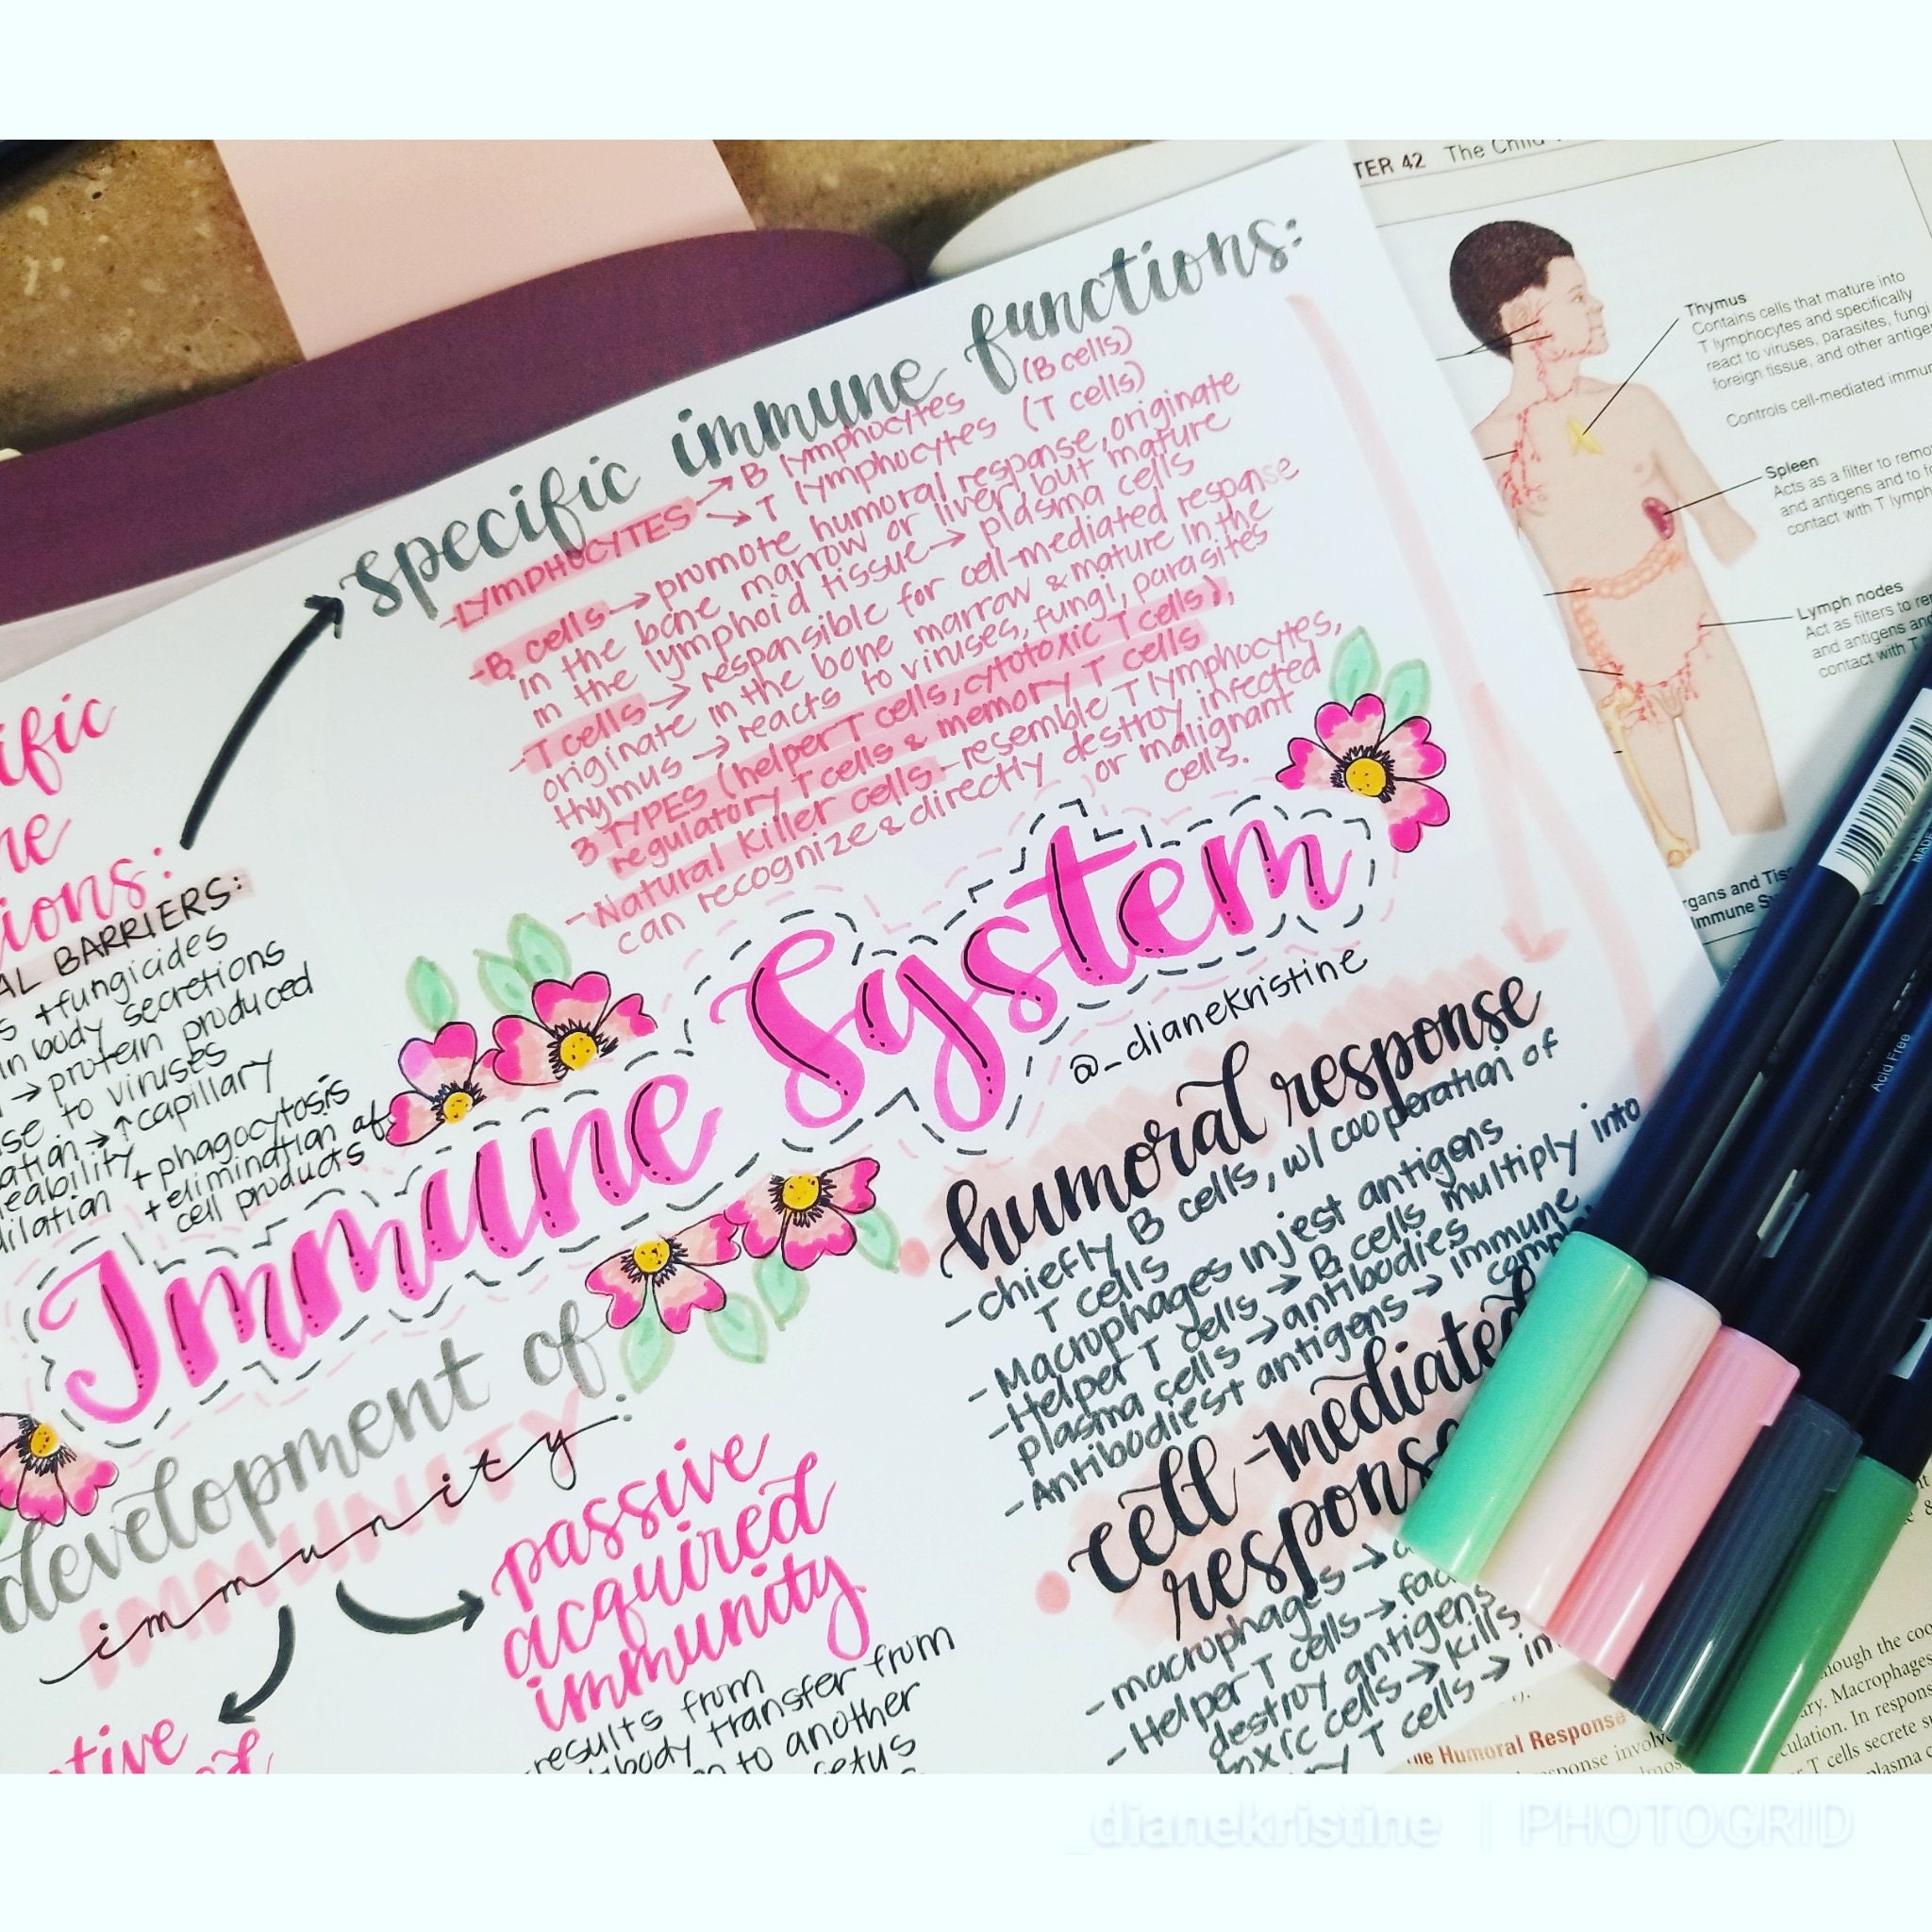 specific immune functions:
-LYMPHOCYTES → B lymphocytes (B cells)
→ T lymphocytes (T cells)
-B cells → promote humoral response, originate
in the bone marrow or liver, but mature
in the lymphoid tissue → plasma cells
-T cells → responsible for cell-mediated response
originate in the bone marrow & mature in the
thymus → reacts to viruses, fungi, parasites
3 TYPES (helper T cells, cytotoxic T cells),
regulatory T cells & memory T cells
-Natural Killer cells - resemble T lymphocytes,
can recognize & directly destroy infected
or malignant
cells.
ific
ne
ions:
AL BARRIERS:
s +fungicides
in body secretions
→ protein produced
se to viruses
ation → ↑ capillary
eability
dilation + phagocytosis
+elimination of
cell products
Immune System
@_dianekristine
development of
IMMUNITY
immunity:
passive
acquired
immunity
results from
body transfer from
to another
fetus
tive
humoral response
-chiefly B cells, w/ cooperation of
T cells
-Macrophages injest antigens
-Helper T cells → B cells multiply into
plasma cells → antibodies
-Antibodiest antigens → immune
comp
cell-mediated
response
-macrophages →
-Helper T cells → fac
destroy antigens
cells → kills
T cells → in
TER 42 The Child
Thymus
Contains cells that mature into
T lymphocytes and specifically
react to viruses, parasites, fungi
foreign tissue, and other antige
Controls cell-mediated immu
Spleen
Acts as a filter to remo
and antigens and to f
contact with T lymph
Lymph nodes
Act as filters to re
and antigens and
contact with T
rgans and Tis
Immune Sy
Acid Free
The Humoral Response
sponse involv
hough the coo
ary. Macrophages
culation. In respons
T cells secrete su
plasma c
_dianekristine | PHOTOGRID